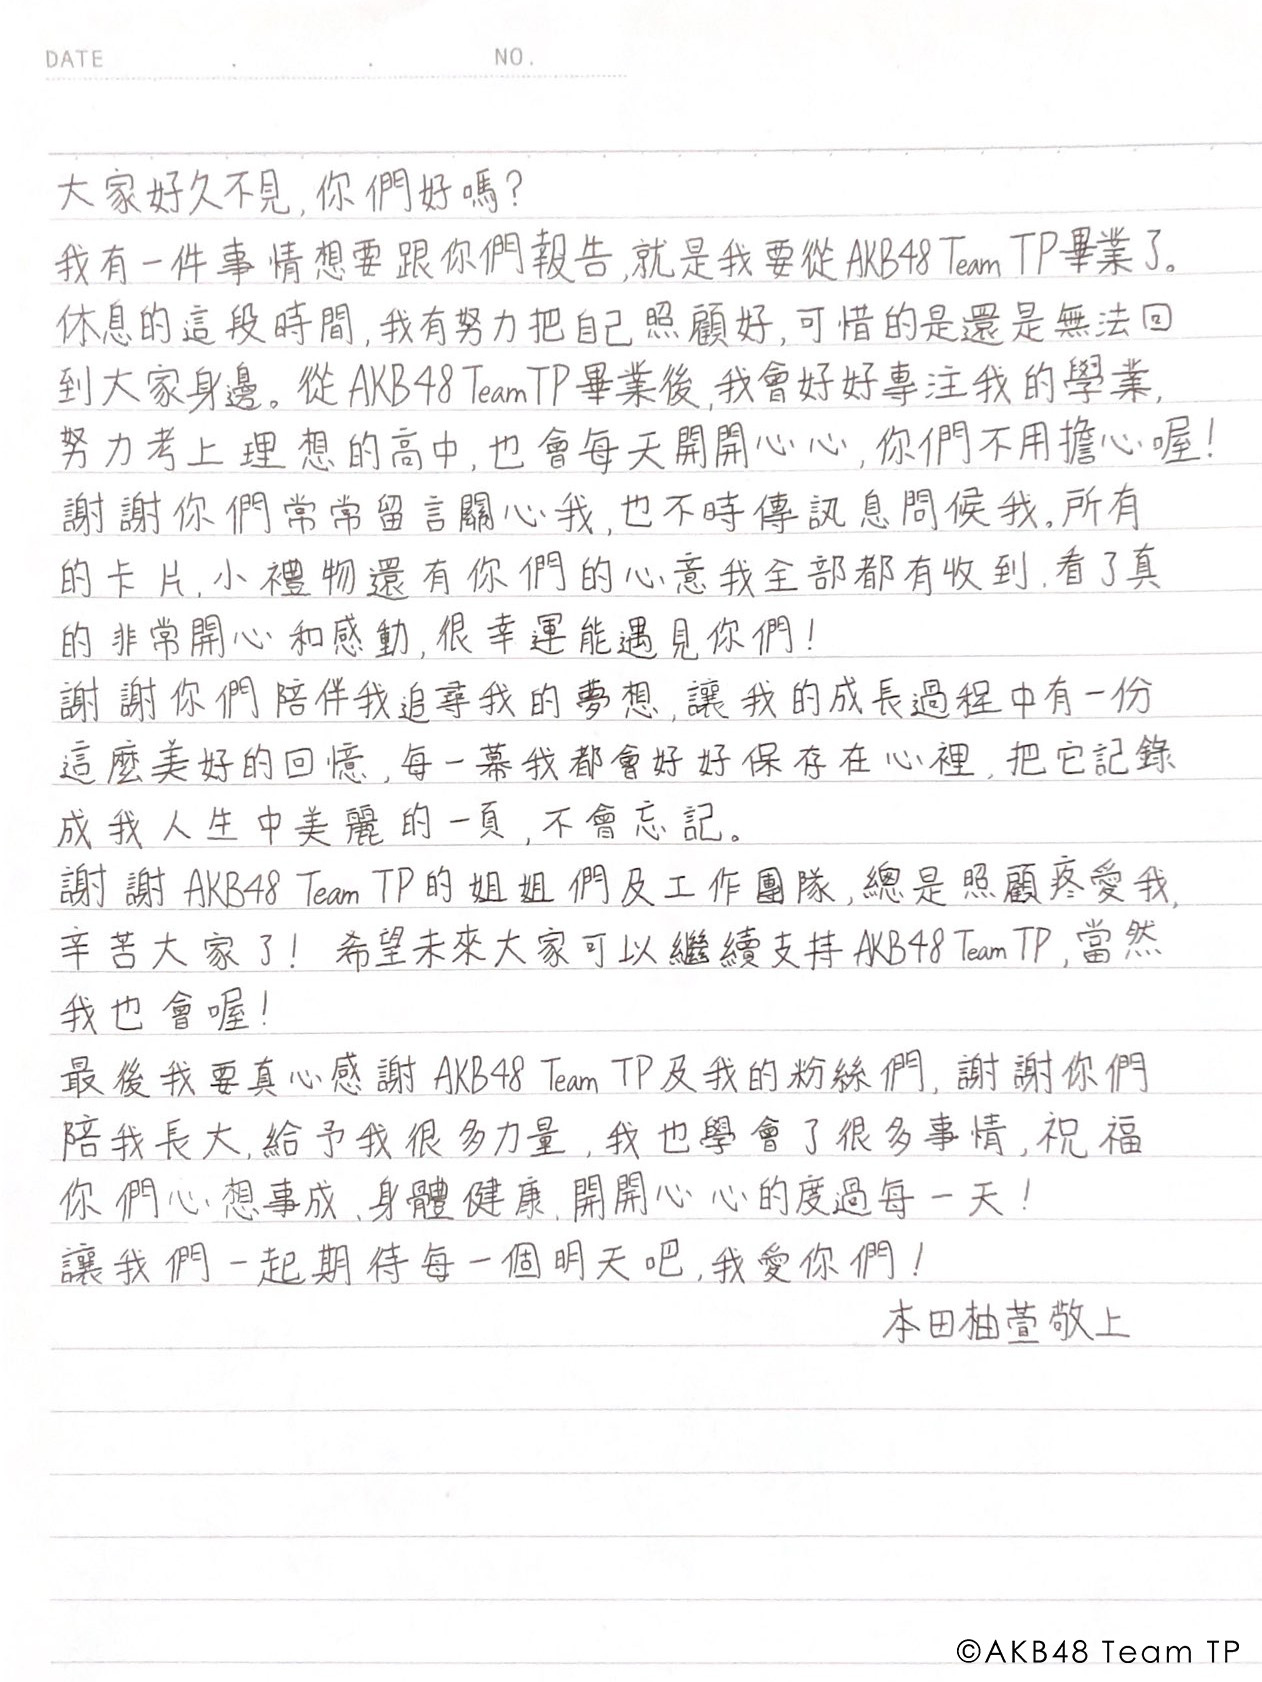 DATE . . NO.
大家好久不見,你們好嗎?
我有一件事情想要跟你們報告,就是我要從AKB48 Team TP畢業了。
休息的這段時間,我有努力把自己照顧好,可惜的是還是無法回
到大家身邊。從AKB48 Team TP畢業後,我會好好專注我的學業,
努力考上理想的高中,也會每天開開心心,你們不用擔心喔!
謝謝你們常常留言關心我,也不時傳訊息問候我。所有
的卡片,小禮物還有你們的心意我全部都有收到,看了真
的非常開心和感動,很幸運能遇見你們!
謝謝你們陪伴我追尋我的夢想,讓我的成長過程中有一份
這麼美好的回憶,每一幕我都會好好保存在心裡,把它記錄
成我人生中美麗的一頁,不會忘記。
謝謝AKB48 Team TP的姐姐們及工作團隊,總是照顧疼愛我,
辛苦大家了! 希望未來大家可以繼續支持AKB48 Team TP,當然
我也會喔!
最後我要真心感謝AKB48 Team TP及我的粉絲們,謝謝你們
陪我長大,給予我很多力量,我也學會了很多事情,祝福
你們心想事成、身體健康、開開心心的度過每一天!
讓我們一起期待每一個明天吧,我愛你們!
本田柚萱敬上
©AKB48 Team TP